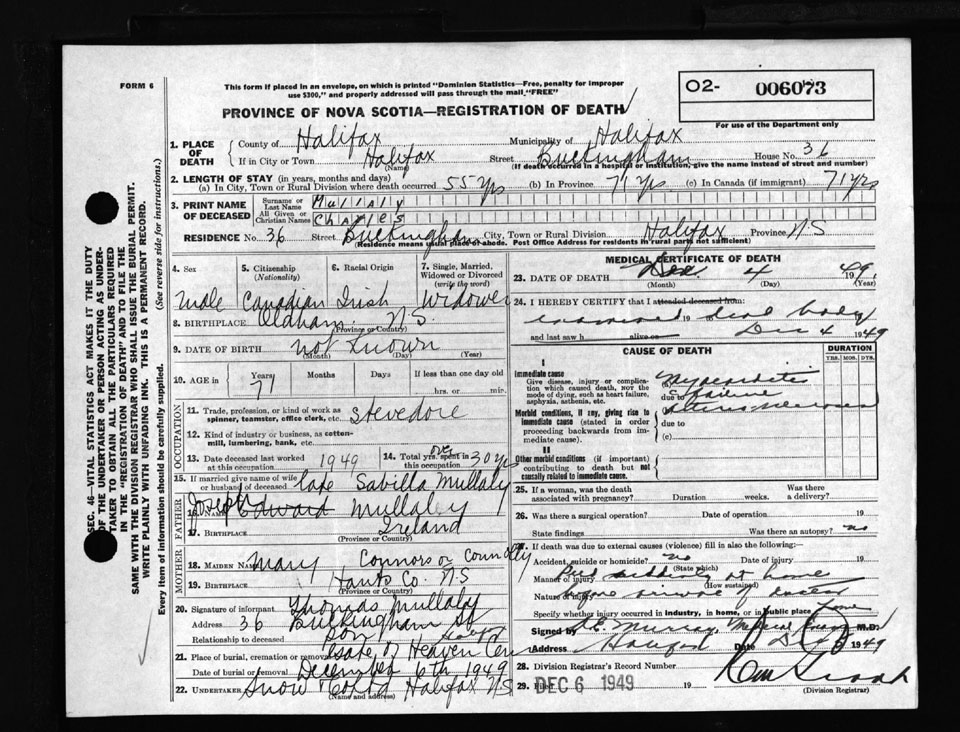 FORM 6
This form if placed in an envelope, on which is printed "Dominion Statistics—Free, penalty for improper
use $300," and properly addressed will pass through the mail "FREE"
PROVINCE OF NOVA SCOTIA—REGISTRATION OF DEATH
O2- 006073
For use of the Department only
1. PLACE OF DEATH
County of Halifax Municipality of Halifax
If in City or Town Halifax Street Buckingham House No. 36
(Name) (If death occurred in a hospital or institution, give the name instead of street and number)
2. LENGTH OF STAY (in years, months and days)
(a) In City, Town or Rural Division where death occurred 55 yrs (b) In Province 71 yrs (c) In Canada (if immigrant) 71 yrs
3. PRINT NAME OF DECEASED
Surname or Last Name Mullaly
All Given or Christian Names Charles
RESIDENCE No. 36 Street Buckingham City, Town or Rural Division Halifax Province N.S
(Residence means usual place of abode. Post Office Address for residents in rural parts not sufficient)
4. Sex Male
5. Citizenship (Nationality) Canadian
6. Racial Origin Irish
7. Single, Married, Widowed or Divorced (write the word) Widower
8. BIRTHPLACE Oldham N.S.
(Province or Country)
9. DATE OF BIRTH not Known
(Month) (Day) (Year)
10. AGE in Years 71 Months Days If less than one day
hrs. or min.
OCCUPATION
11. Trade, profession, or kind of work as spinner, teamster, office clerk, etc. Stevedore
12. Kind of industry or business, as cotton-mill, lumbering, bank, etc.
13. Date deceased last worked at this occupation 1949
14. Total yrs. spent in this occupation over 30 yrs
15. If married give name of wife or husband of deceased late Savilla Mullaly
FATHER
16. NAME Joseph Edward Mullaly
17. BIRTHPLACE Ireland
(Province or Country)
MOTHER
18. MAIDEN NAME Mary Connors or Connolly
19. BIRTHPLACE Hants Co. N.S
(Province or Country)
20. Signature of informant Thomas Mullaly
Address 36 Buckingham St
Relationship to deceased son
21. Place of burial, cremation or removal Gate of Heaven Cem
Date of burial or removal December 6th 1949
22. UNDERTAKER Snow & Co Ltd Halifax N.S
(Name and address)
MEDICAL CERTIFICATE OF DEATH
23. DATE OF DEATH Dec. 4 1949.
(Month) (Day) (Year)
24. I HEREBY CERTIFY that I attended deceased from:
examined 19 dead body
and last saw h alive on Dec 4 1949
CAUSE OF DEATH
DURATION
YRS. MOS. DYS.
I
Immediate cause
Give disease, injury or complication which caused death, not the mode of dying, such as heart failure, asphyxia, asthenia, etc.
Myocarditis
due to failure
Morbid conditions, if any, giving rise to immediate cause (stated in order proceeding backwards from immediate cause).
due to
(c)
II
Other morbid conditions (if important) contributing to death but not causally related to immediate cause.
25. If a woman, was the death associated with pregnancy? Duration weeks. Was there a delivery?
26. Was there a surgical operation? Date of operation 19
State findings Was there an autopsy? no
27. If death was due to external causes (violence) fill in also the following:—
Accident, suicide or homicide? no Date of injury 19
(State which)
Manner of injury Died suddenly at home
(How sustained)
Nature of injury before arrival of doctor
Specify whether injury occurred in industry, in home, or in public place home
Signed by Murray, Medical M.D.
Address Halifax Date 1949
28. Division Registrar's Record Number
29. Filed DEC 6 1949 19
(Division Registrar)
SEC. 46—VITAL STATISTICS ACT MAKES IT THE DUTY
OF THE UNDERTAKER OR PERSON ACTING AS UNDER-
TAKER TO OBTAIN ALL THE PARTICULARS REQUIRED
IN THE "REGISTRATION OF DEATH" AND TO FILE THE
SAME WITH THE DIVISION REGISTRAR WHO SHALL ISSUE THE BURIAL PERMIT.
WRITE PLAINLY WITH UNFADING INK. THIS IS A PERMANENT RECORD.
Every item of information should be carefully supplied. (See reverse side for instructions.)